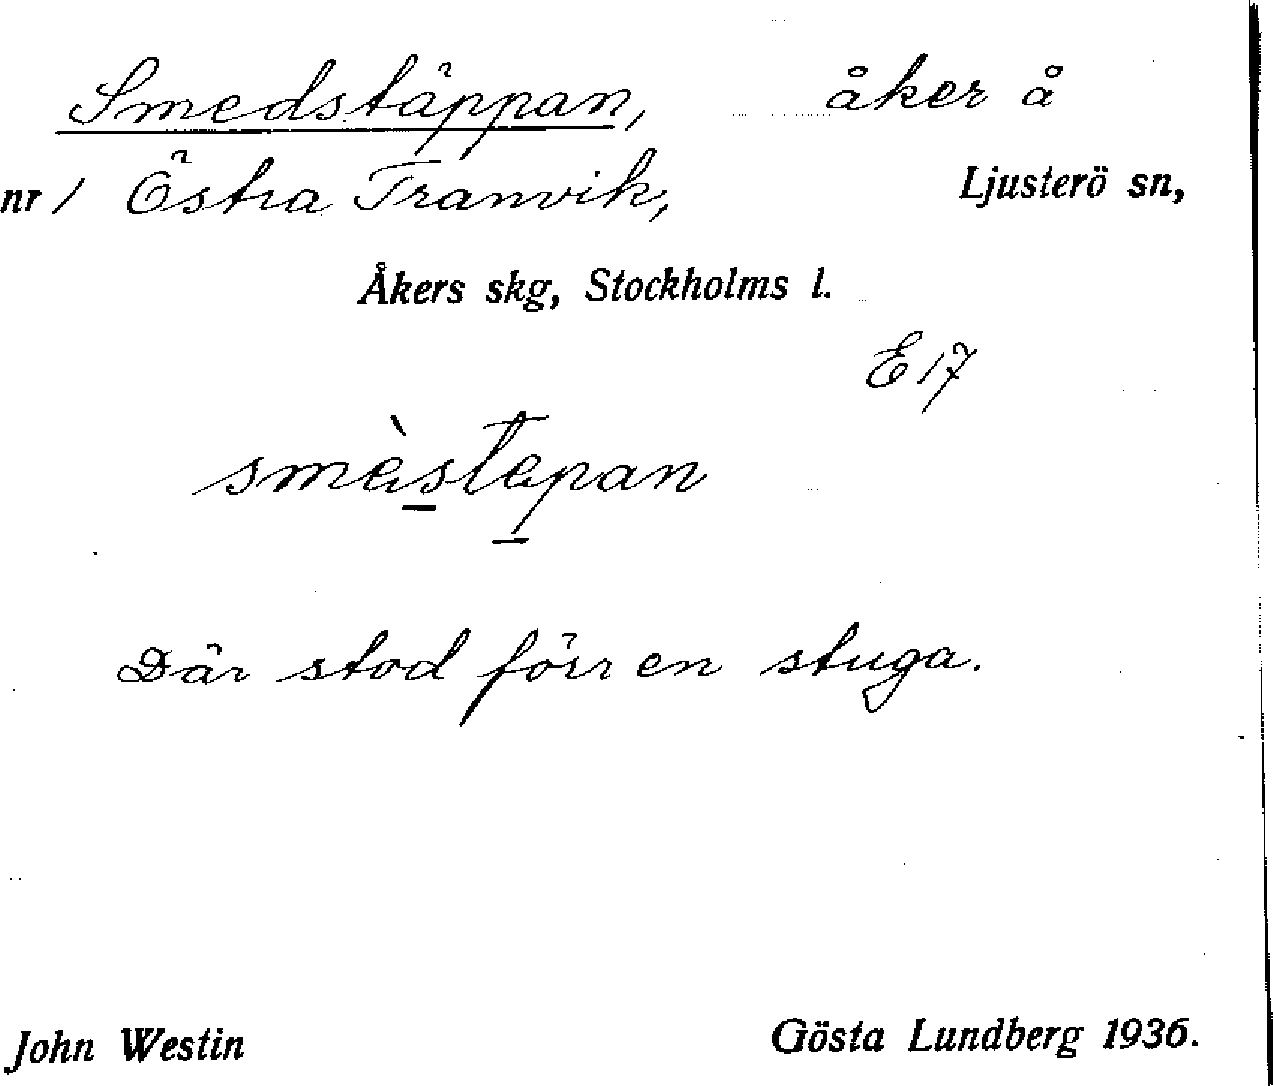 Smedstäppan, åker å
nr 1 Östra Tranvik, Ljusterö sn,
Åkers skg, Stockholms l.
E 17
smèstepan
Där stod förr en stuga.
John Westin Gösta Lundberg 1936.